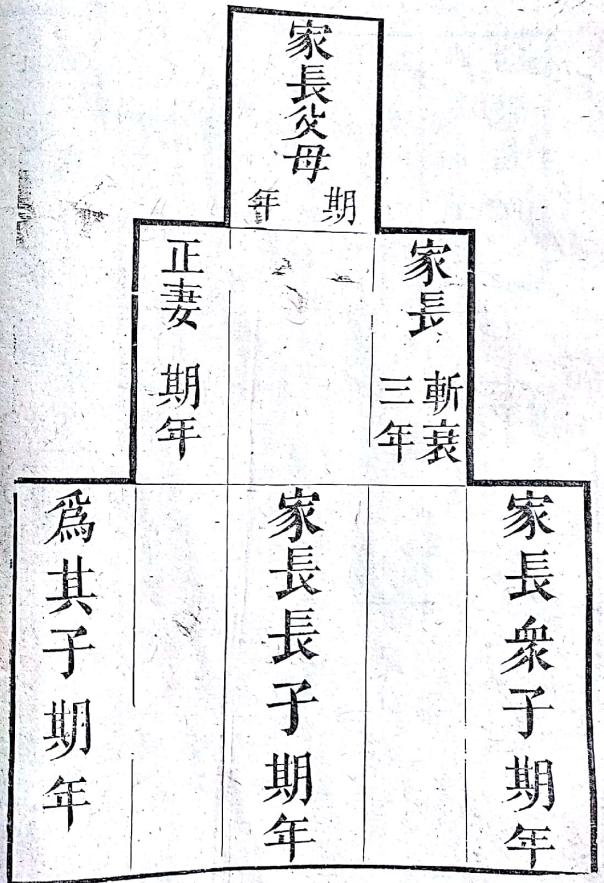 家長父母
期年
家長
斬衰
三年
正妻 期年
家長衆子期年
家長長子期年
爲其子期年